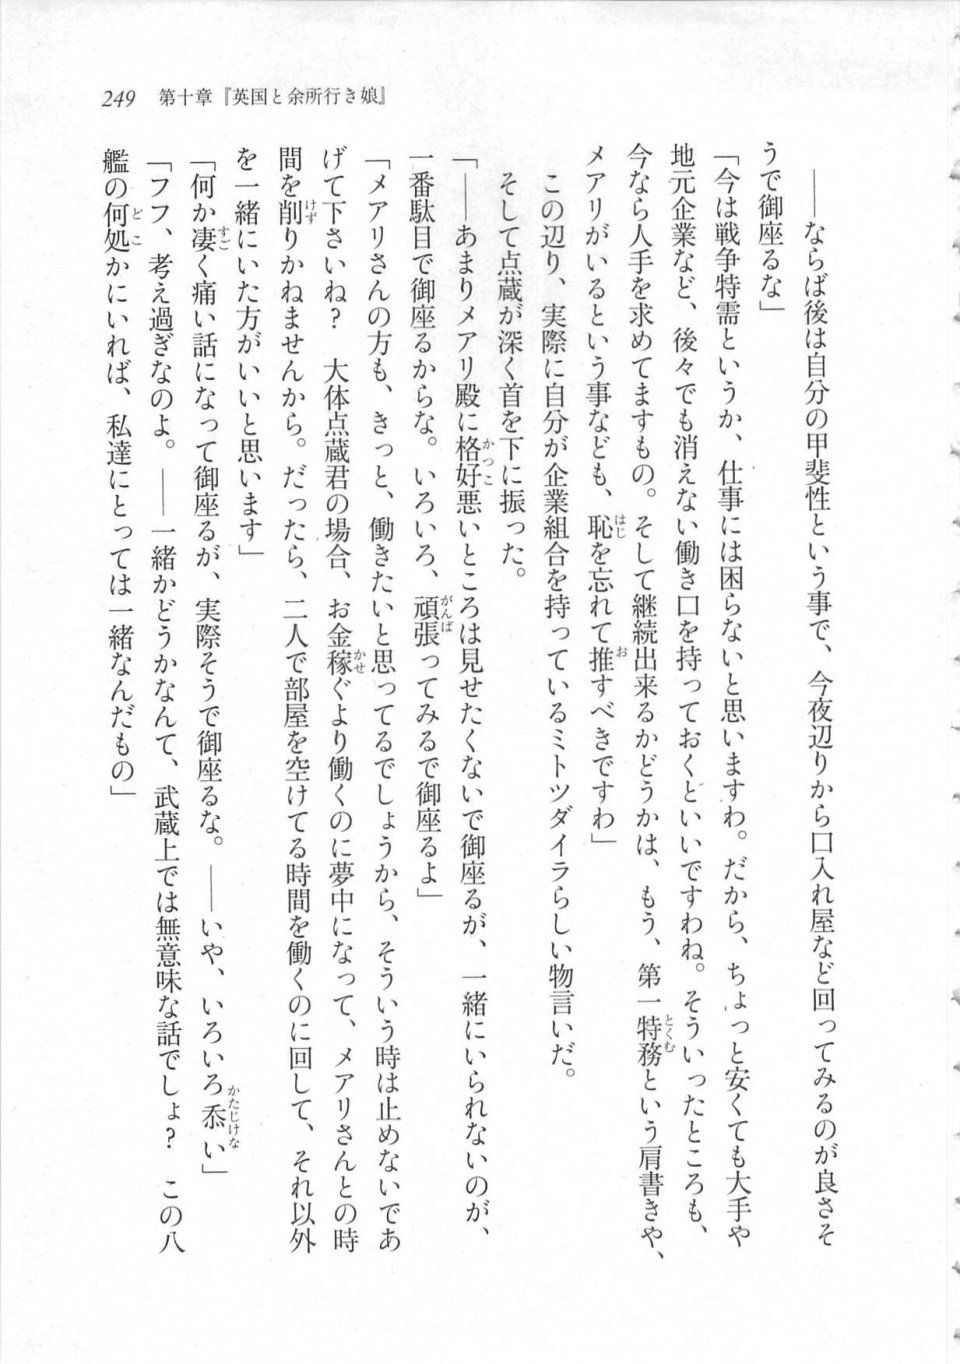 249　第十章『英国と余所行き娘』
――ならば後は自分の甲斐性という事で、今夜辺りから口入れ屋など回ってみるのが良さそ
うで御座るな」
「今は戦争特需というか、仕事には困らないと思いますわ。だから、ちょっと安くても大手や
地元企業など、後々でも消えない働き口を持っておくといいですわね。そういったところも、
今なら人手を求めてますもの。そして継続出来るかどうかは、もう、第一特務という肩書きや、
メアリがいるという事なども、恥を忘れて推すべきですわ」
この辺り、実際に自分が企業組合を持っているミトツダイラらしい物言いだ。
そして点蔵が深く首を下に振った。
「――あまりメアリ殿に格好悪いところは見せたくないで御座るが、一緒にいられないのが、
一番駄目で御座るからな。いろいろ、頑張ってみるで御座るよ」
「メアリさんの方も、きっと、働きたいと思ってるでしょうから、そういう時は止めないであ
げて下さいね？　大体点蔵君の場合、お金稼ぐより働くのに夢中になって、メアリさんとの時
間を削りかねませんから。だったら、二人で部屋を空けてる時間を働くのに回して、それ以外
を一緒にいた方がいいと思います」
「何か凄く痛い話になって御座るが、実際そうで御座るな。――いや、いろいろ忝い」
「フフ、考え過ぎなのよ。――一緒かどうかなんて、武蔵上では無意味な話でしょ？　この八
艦の何処かにいれば、私達にとっては一緒なんだもの」